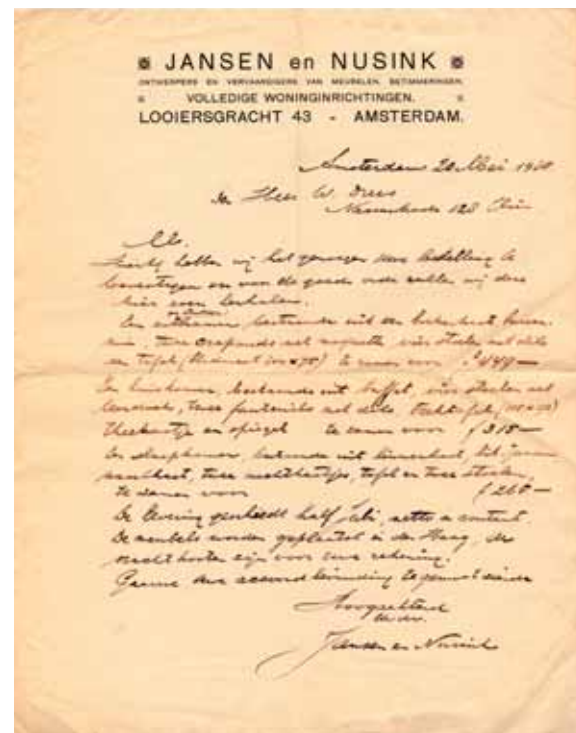 JANSEN en NUSINK
ONTWERPERS EN VERVAARDIGERS VAN MEUBELEN, BETIMMERINGEN,
VOLLEDIGE WONINGINRICHTINGEN.
LOOIERSGRACHT 43 - AMSTERDAM.
Amsterdam 20 Mei 1910
den Heer W. Drees
128 Alhier
M.
Hierbij hebben wij het genoegen uwe bestelling te
bevestigen en voor de goede orde zullen wij deze
hier even herhalen.
Een bestaande uit een boekenkast,
twee crapauds met moquette vier stoelen met
een tafel te samen voor f 449—
Een huiskamer, bestaande uit buffet, vier stoelen met
twee fauteuils met
Theekastje en spiegel te samen voor f 315—
Een slaapkamer, bestaande uit linnenkast, lit
twee nachtkastjes, tafel en twee stoelen,
te samen voor f 265—
De levering geschiedt half Juli, netto a contant.
De meubels worden geplaatst in den Haag, de
vrachtkosten zijn voor uwe rekening.
Gaarne uwe accoord bevinding tegemoet ziende
Hoogachtend
Uw dw.
Jansen en Nusink